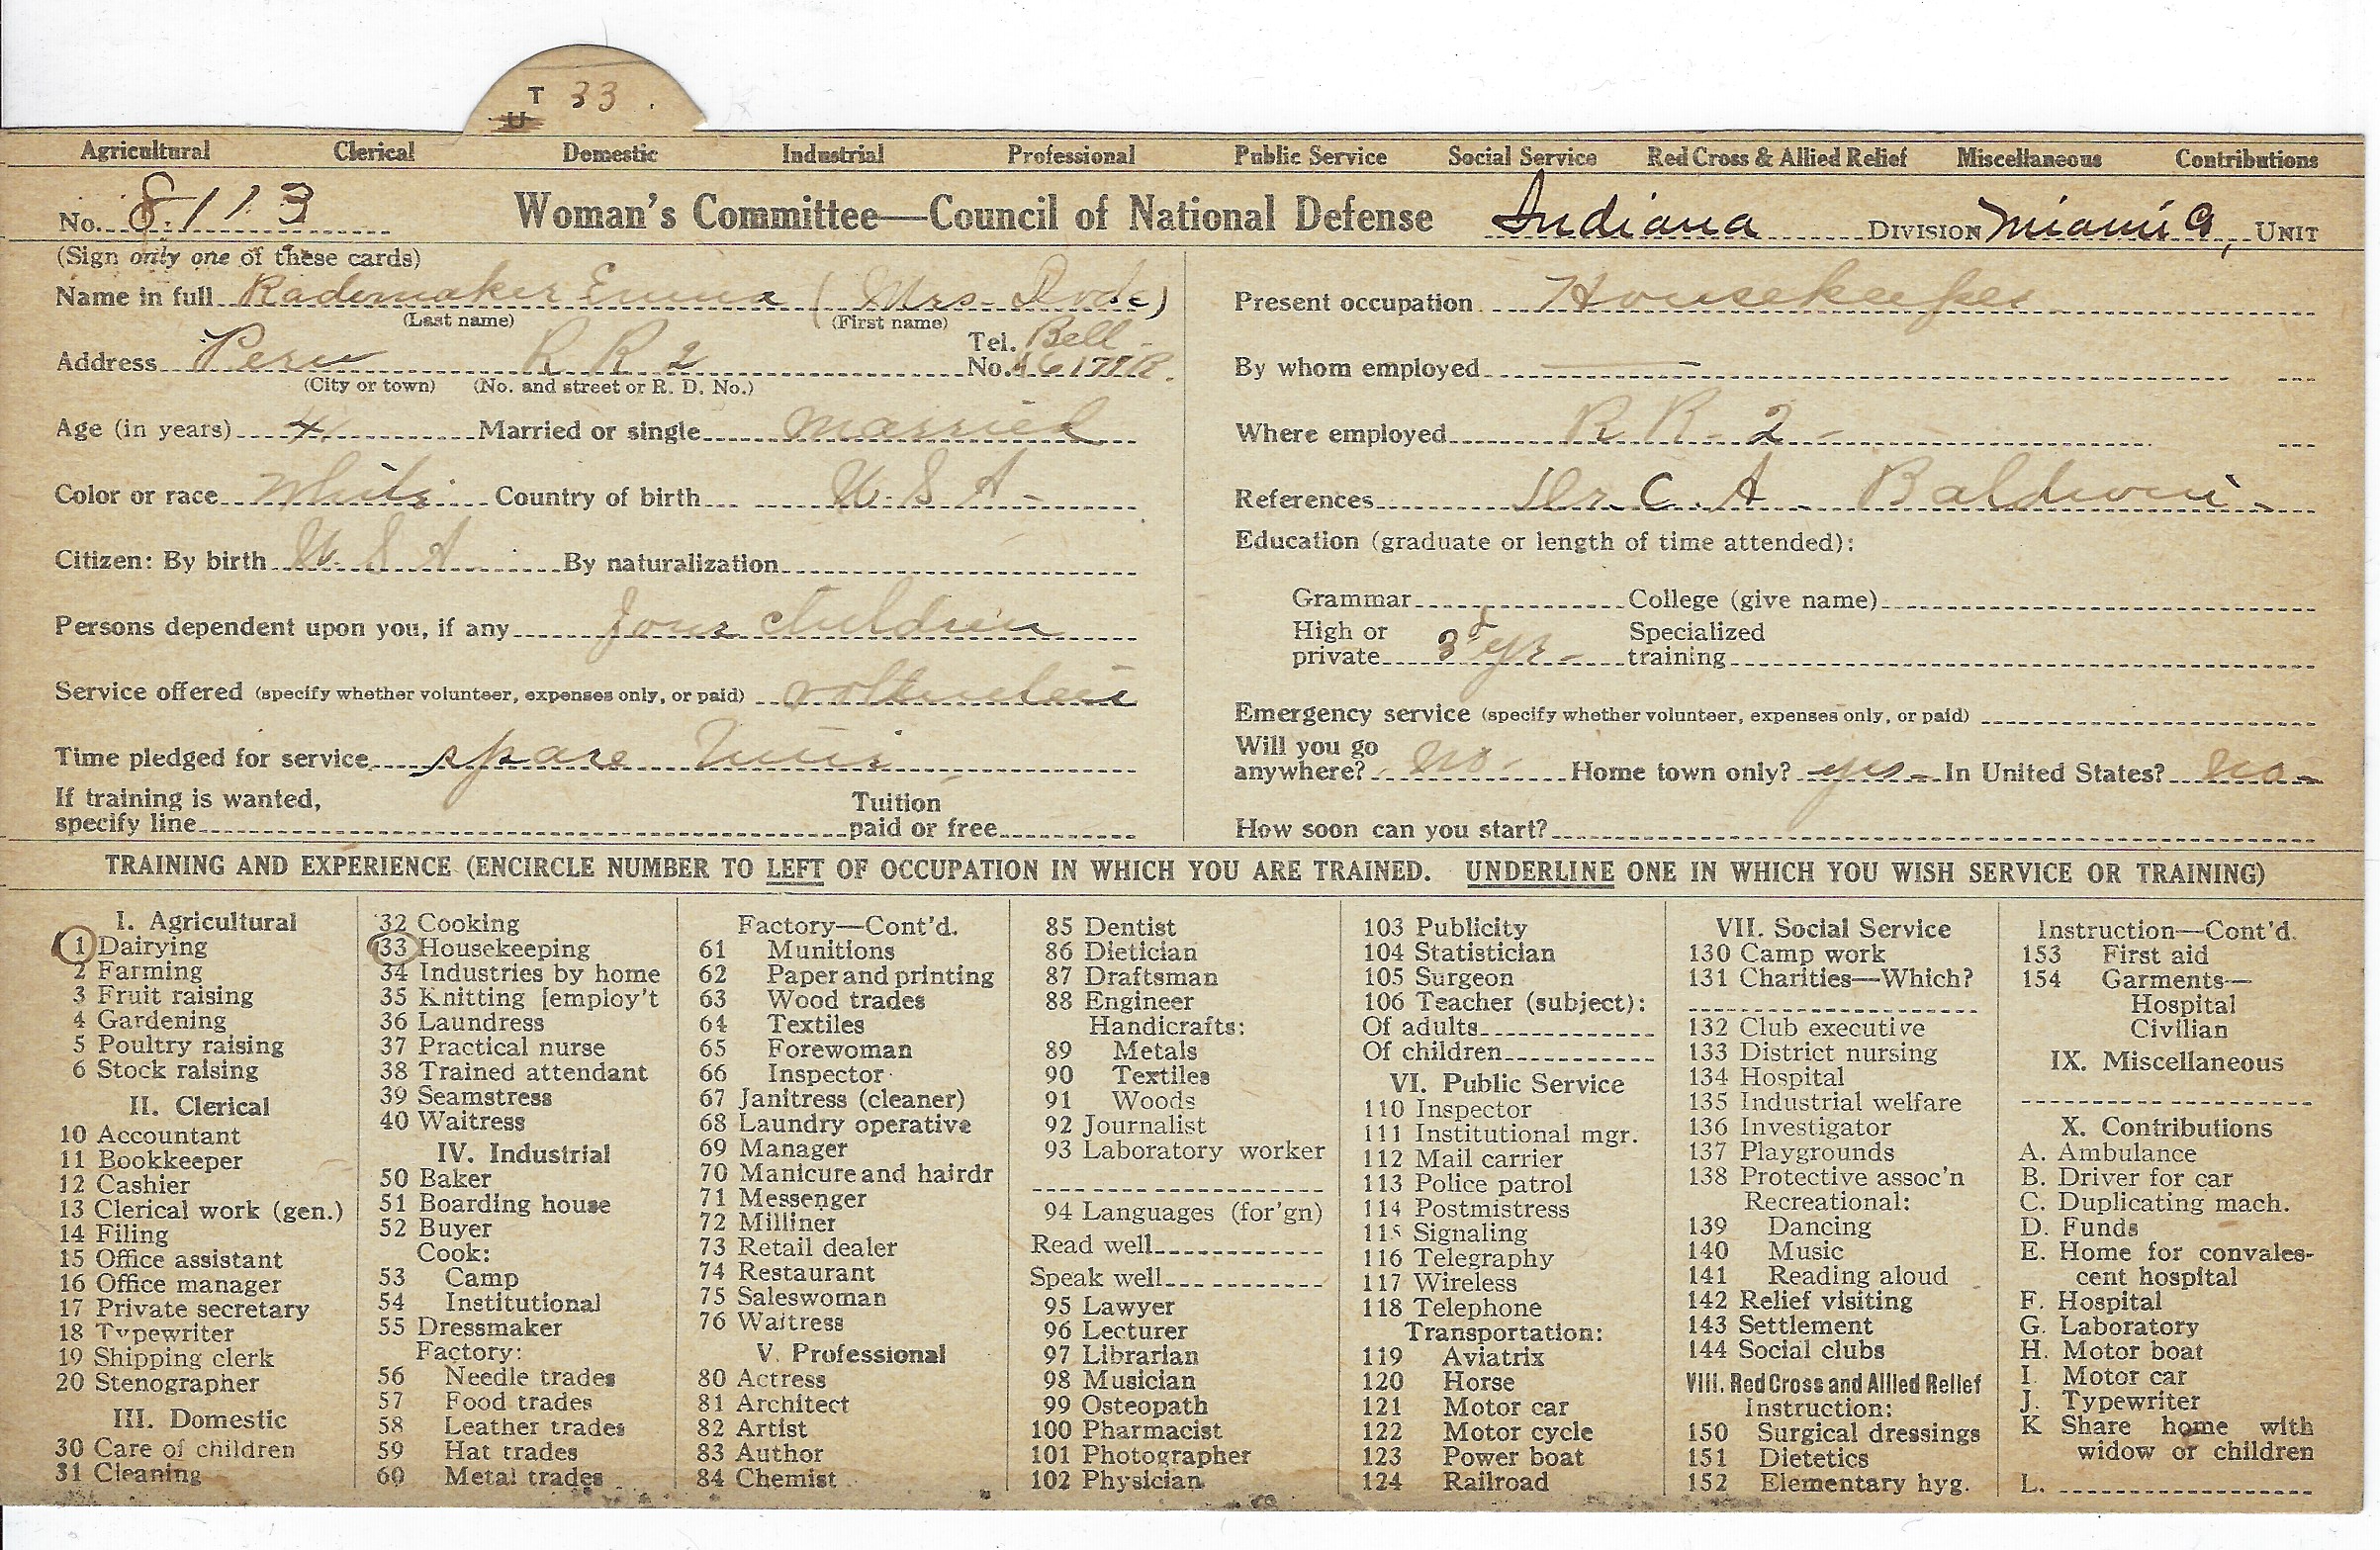 T 33
U
Agricultural Clerical Domestic Industrial Professional Public Service Social Service Red Cross & Allied Relief Miscellaneous Contributions
No. 8113 Woman's Committee—Council of National Defense Indiana DIVISION Miami Co, UNIT
(Sign only one of these cards)
Name in full Rademaker Emma (Mrs.
(Last name) (First name)
Address Peru R R 2 Tel. No. Bell
(City or town) (No. and street or R. D. No.)
Age (in years) Married or single married
Color or race White Country of birth U. S. A-
Citizen: By birth U. S. A By naturalization
Persons dependent upon you, if any four children
Service offered (specify whether volunteer, expenses only, or paid)
Time pledged for service spare time
If training is wanted, specify line Tuition paid or free
Present occupation Housekeeper
By whom employed
Where employed R R - 2 -
References Dr. C. A. Baldwin -
Education (graduate or length of time attended):
Grammar College (give name)
High or private 3 yr - Specialized training
Emergency service (specify whether volunteer, expenses only, or paid)
Will you go anywhere? no - Home town only? yes - In United States? no -
How soon can you start?
TRAINING AND EXPERIENCE (ENCIRCLE NUMBER TO LEFT OF OCCUPATION IN WHICH YOU ARE TRAINED. UNDERLINE ONE IN WHICH YOU WISH SERVICE OR TRAINING)
I. Agricultural
1 Dairying
2 Farming
3 Fruit raising
4 Gardening
5 Poultry raising
6 Stock raising
II. Clerical
10 Accountant
11 Bookkeeper
12 Cashier
13 Clerical work (gen.)
14 Filing
15 Office assistant
16 Office manager
17 Private secretary
18 Typewriter
19 Shipping clerk
20 Stenographer
III. Domestic
30 Care of children
31 Cleaning
32 Cooking
33 Housekeeping
34 Industries by home
35 Knitting [employ't
36 Laundress
37 Practical nurse
38 Trained attendant
39 Seamstress
40 Waitress
IV. Industrial
50 Baker
51 Boarding house
52 Buyer
Cook:
53 Camp
54 Institutional
55 Dressmaker
Factory:
56 Needle trades
57 Food trades
58 Leather trades
59 Hat trades
60 Metal trades
Factory—Cont'd.
61 Munitions
62 Paper and printing
63 Wood trades
64 Textiles
65 Forewoman
66 Inspector
67 Janitress (cleaner)
68 Laundry operative
69 Manager
70 Manicure and hairdr
71 Messenger
72 Milliner
73 Retail dealer
74 Restaurant
75 Saleswoman
76 Waitress
V. Professional
80 Actress
81 Architect
82 Artist
83 Author
84 Chemist
85 Dentist
86 Dietician
87 Draftsman
88 Engineer
Handicrafts:
89 Metals
90 Textiles
91 Woods
92 Journalist
93 Laboratory worker
94 Languages (for'gn)
Read well
Speak well
95 Lawyer
96 Lecturer
97 Librarian
98 Musician
99 Osteopath
100 Pharmacist
101 Photographer
102 Physician
103 Publicity
104 Statistician
105 Surgeon
106 Teacher (subject):
Of adults
Of children
VI. Public Service
110 Inspector
111 Institutional mgr.
112 Mail carrier
113 Police patrol
114 Postmistress
115 Signaling
116 Telegraphy
117 Wireless
118 Telephone
Transportation:
119 Aviatrix
120 Horse
121 Motor car
122 Motor cycle
123 Power boat
124 Railroad
VII. Social Service
130 Camp work
131 Charities—Which?
132 Club executive
133 District nursing
134 Hospital
135 Industrial welfare
136 Investigator
137 Playgrounds
138 Protective assoc'n
Recreational:
139 Dancing
140 Music
141 Reading aloud
142 Relief visiting
143 Settlement
144 Social clubs
VIII. Red Cross and Allied Relief
Instruction:
150 Surgical dressings
151 Dietetics
152 Elementary hyg.
Instruction—Cont'd.
153 First aid
154 Garments—
Hospital
Civilian
IX. Miscellaneous
X. Contributions
A. Ambulance
B. Driver for car
C. Duplicating mach.
D. Funds
E. Home for convales-
cent hospital
F. Hospital
G. Laboratory
H. Motor boat
I. Motor car
J. Typewriter
K Share home with
widow or children
L.